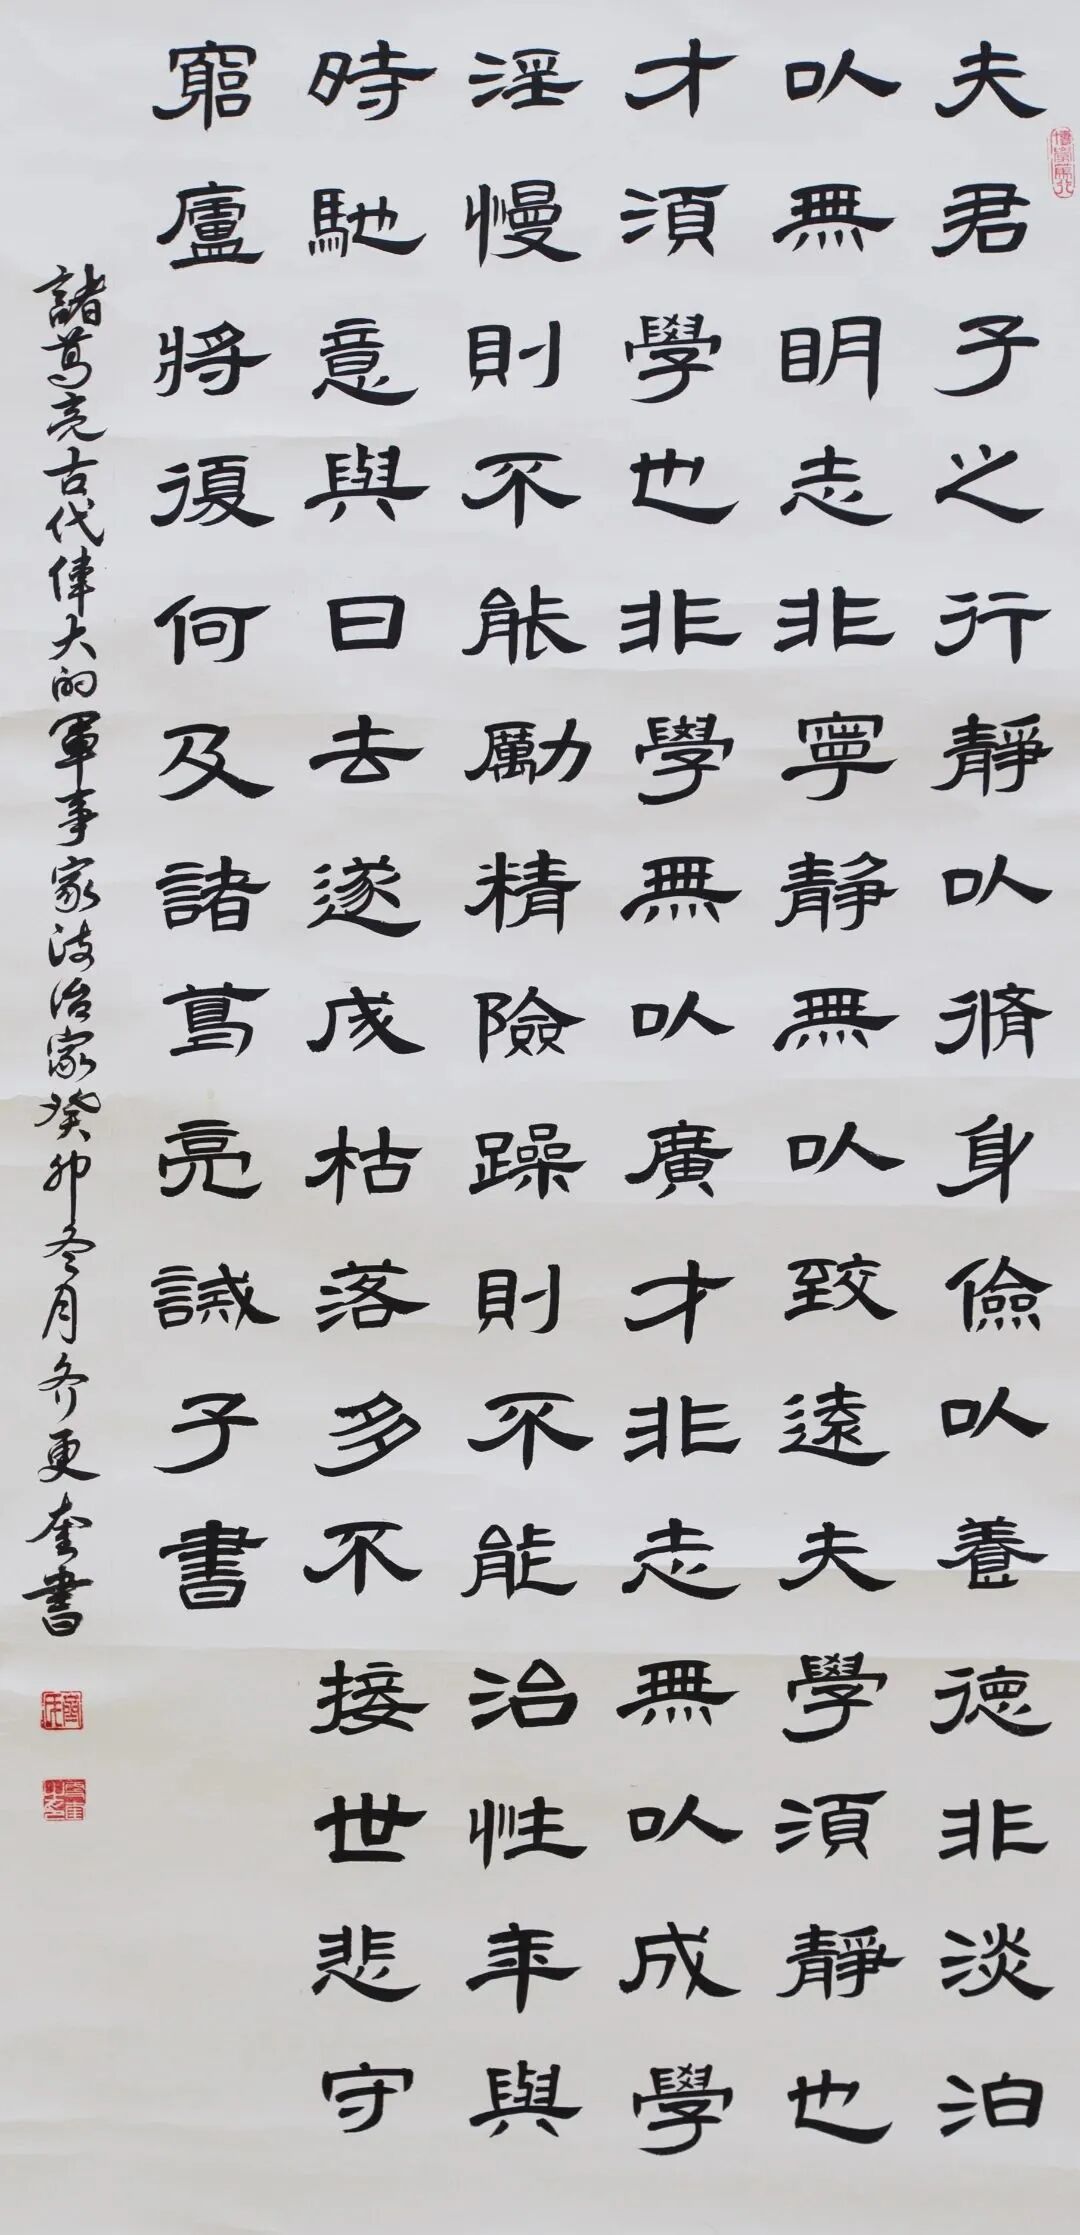 博學篤行
夫君子之行靜以脩身儉以養德非淡泊
以無明志非寧靜無以致遠夫學須靜也
才須學也非學無以廣才非志無以成學
淫慢則不能勵精險躁則不能治性年與
時馳意與日去遂成枯落多不接世悲守
窮廬將復何及諸葛亮誡子書
諸葛亮古代偉大的軍事家政治家癸卯冬月齐更奎書